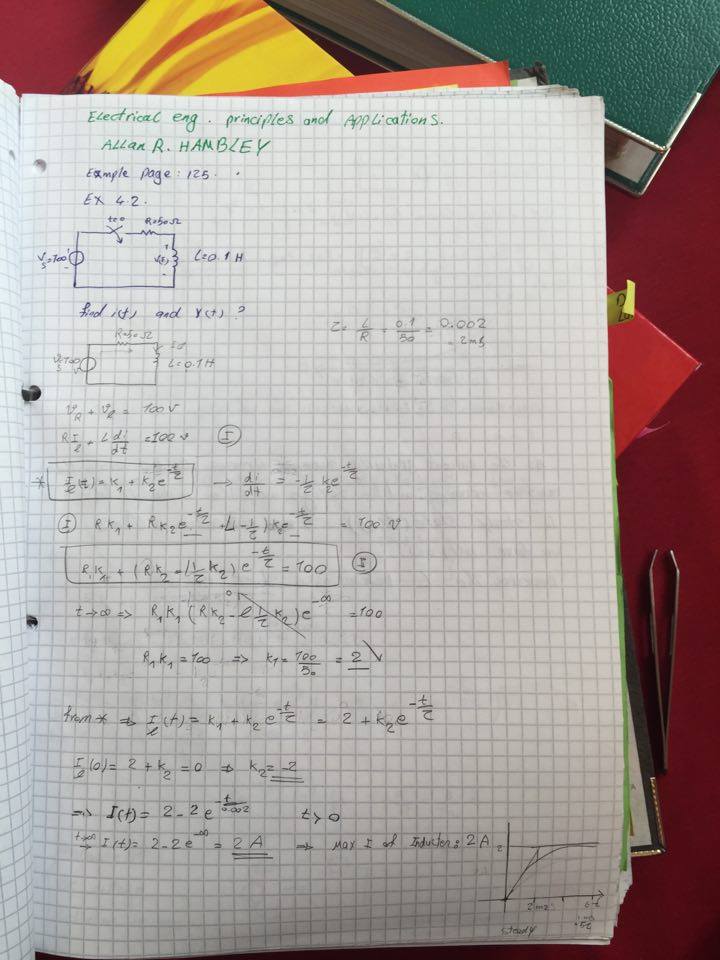 Electrical eng. principles and Applications.
Allan R. HAMBLEY
Example page: 125.
EX 4.2.
t=0 R=50Ω
Vs=100 V(t) L=0.1 H
find i(t) and V(t) ?
τ = L/R = 0.1/50 = 0.002
= 2ms
R=50Ω
L=0.1H
VR + Vl = 100 V
R Il + L di/dt = 100 v Ⓘ
* Il(t) = K1 + K2 e^-t/τ → di/dt = -1/τ K2 e^-t/τ
Ⓘ R K1 + R K2 e^-t/τ + L(-1/τ) K2 e^-t/τ = 100 V
R K1 + (R K2 - L 1/τ K2) e^-t/τ = 100
t→∞ ⇒ R1 K1 (R K2 - l 1/τ K2) e^-∞ = 100
0
R1 K1 = 100 ⇒ K1 = 100/50 = 2
from * ⇒ Il(t) = K1 + K2 e^-t/τ = 2 + K2 e^-t/τ
Il(0) = 2 + K2 = 0 ⇒ K2 = -2
⇒ I(t) = 2 - 2 e^-t/0.002 t > 0
t→∞ → I(t) = 2 - 2 e^-∞ = 2 A ⇒ Max I of Inductor: 2 A
2
steady